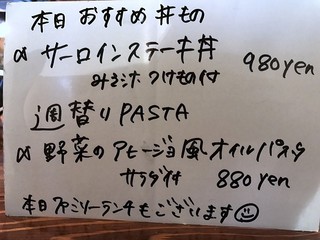 本日 おすすめ 丼もの
α サーロインステーキ丼 980yen
みそ汁 つけもの付
週替り PASTA
α 野菜のアヒージョ風 オイルパスタ
サラダ付 880yen
本日 ファミリーランチもございます